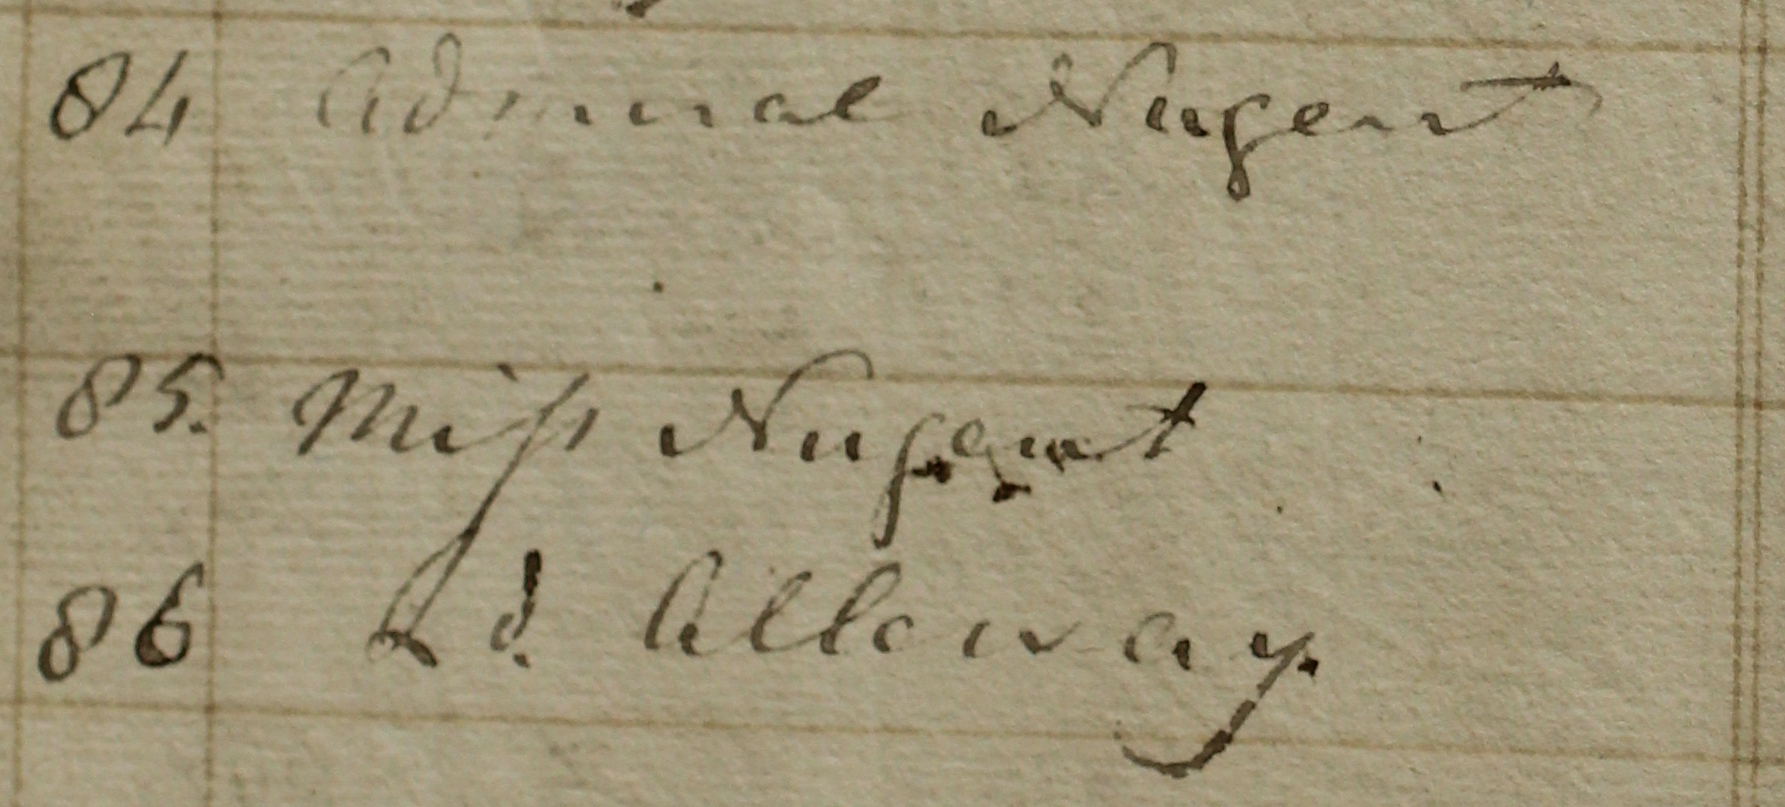 84 Admiral Nugent
85. Miss Nugent
86 Ld. Alloway